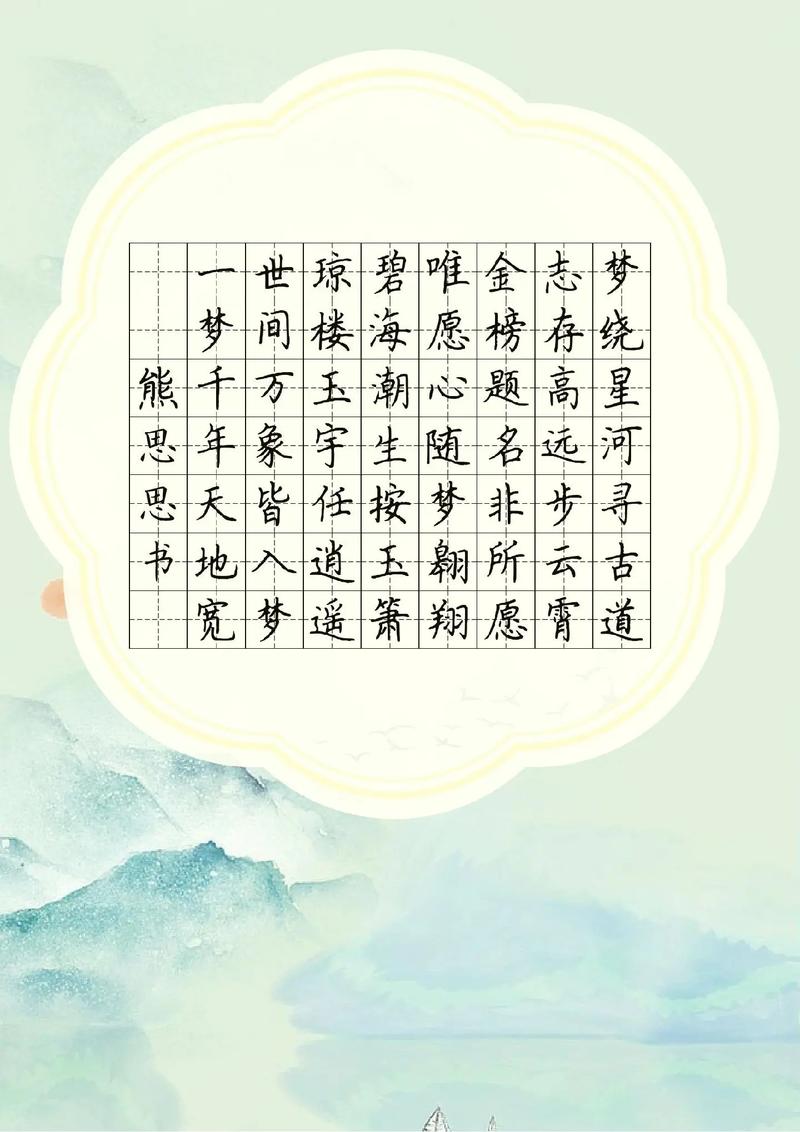 梦绕星河寻古道
志存高远步云霄
金榜题名非所愿
唯愿心随梦翱翔
碧海潮生按玉箫
琼楼玉宇任逍遥
世间万象皆入梦
一梦千年天地宽
熊思思书